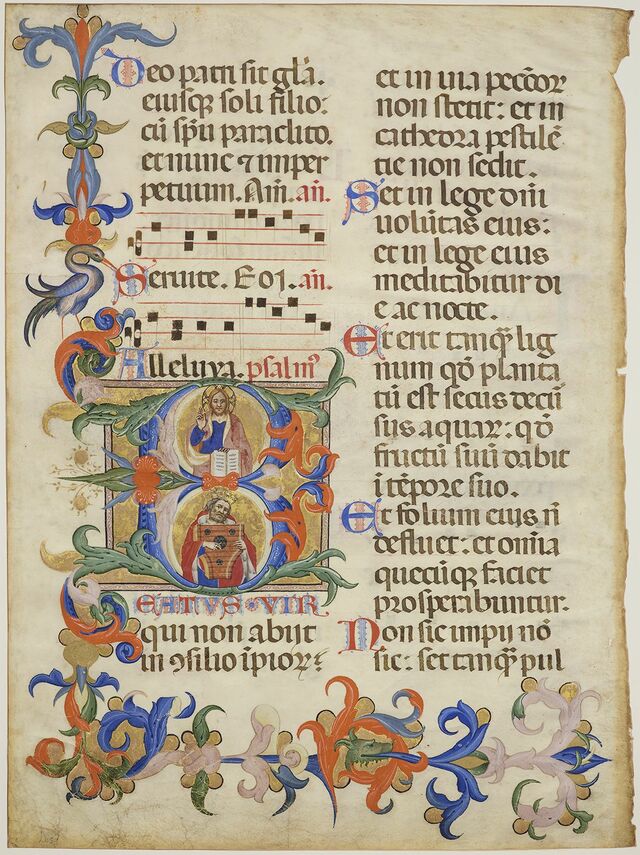 Deo patri sit glã.
eiusque soli filio:
cũ spũ paraclito.
et nunc ⁊ imper
petuum. Am̃. añ.
Seruite. EO1. añ.
Alleluya. psalm⁹
BEATVS · VIR
qui non abijt
in ꝯsilio ĩpiorꝝ:
et in uia peccõꝝ
non stetit: et in
cathedra pestilẽ
tie non sedit.
Set in lege dñi
uolũtas eius:
et in lege eius
meditabitur di
e ac nocte.
Et erit tanqꝫ lig
num qõ planta
tũ est secus decur
sus aquaꝝ: qõ
fructũ suũ dabit
ĩ tẽpore suo.
Et folium eius ñ
defluet: et omĩa
quecũqꝫ faciet
prosperabuntur.
Non sic impij nõ
sic: set tanqꝫ pul